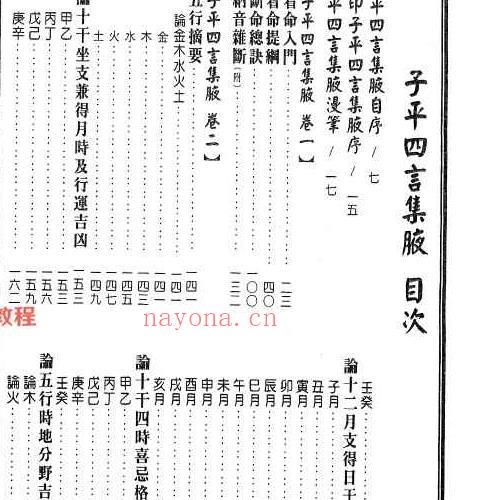 子平四言集腋 目次
平四言集腋自序/七
印子平四言集腋序/一五
平四言集腋漫筆/一七
子平四言集腋 卷一】
看命入門 二三
看命提綱 四〇
斷命總訣 一〇〇
納音雜斷(附) 一三二
子平四言集腋 卷二】
五行摘要 一四一
論金木水火土 一四一
金 一四一
木 一四三
水 一四五
火
土 一四九
論十干坐支兼得月時及行運吉凶 一五三
甲乙 一五三
丙丁 一五六
戊己 一五九
庚辛 一六二
壬癸
論十二月支得日干
子月
丑月
寅月
卯月
辰月
巳月
午月
未月
申月
酉月
戌月
亥月
論十干四時喜忌格
甲乙
丙丁
戊己
庚辛
壬癸
論五行時地分野吉
論木
論火
教程
nayona.cn